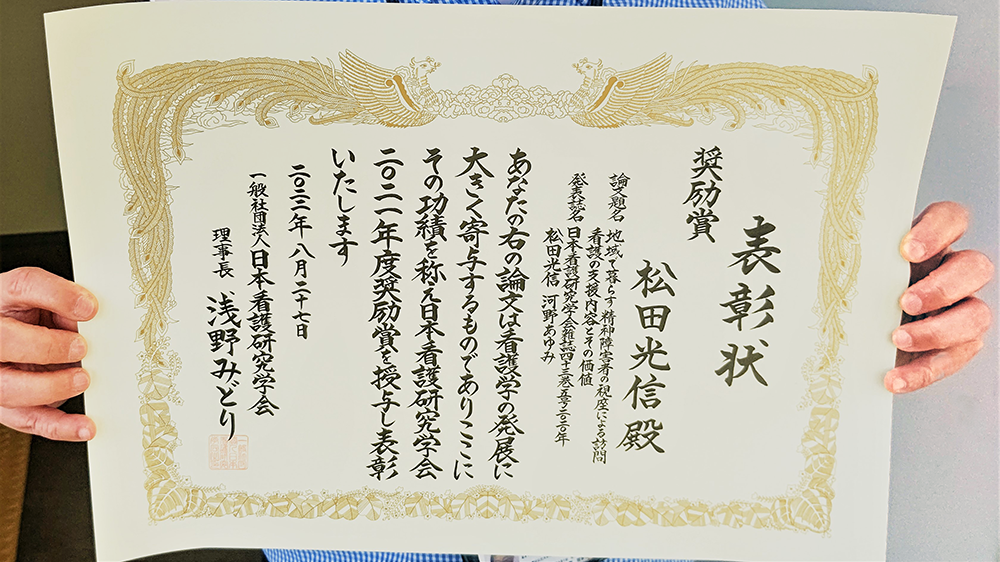 表彰状
奨励賞
松田光信殿
論文題名 地域で暮らす精神障害者の視座による訪問
看護の支援内容とその価値
発表誌名 日本看護研究学会雑誌四十三巻五号二〇二〇年
松田光信 河野あゆみ
あなたの右の論文は看護学の発展に
大きく寄与するものでありここに
その功績を称え日本看護研究学会
二〇二一年度奨励賞を授与し表彰
いたします
二〇二二年八月二十七日
一般社団法人日本看護研究学会
理事長 浅野みどり